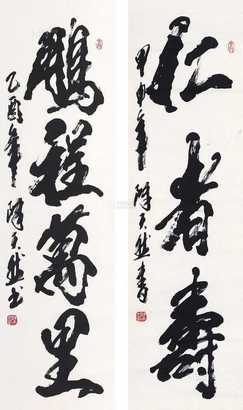 仁者壽
甲申年 陳天然書
鵬程萬里
乙酉年 陳天然书